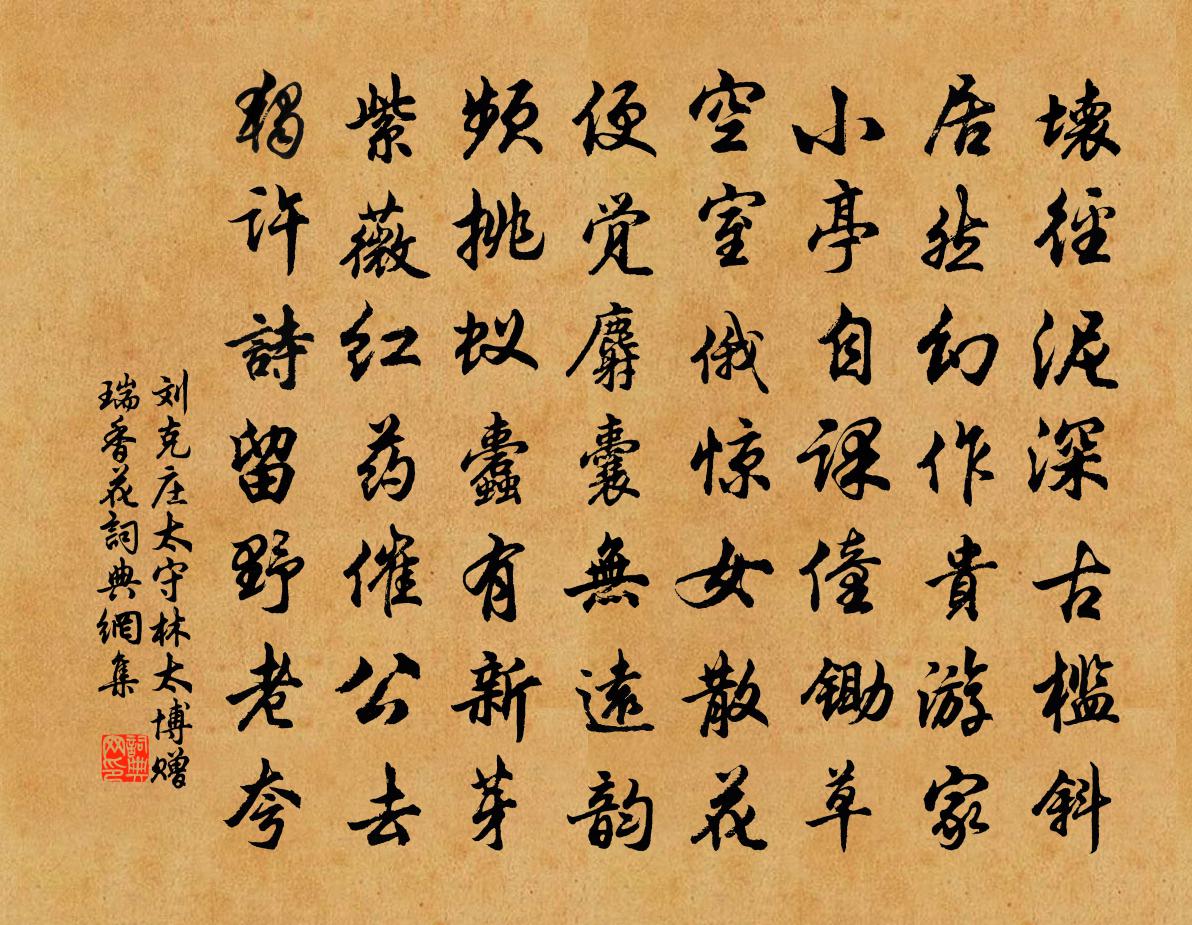 壊径泥深古檻斜
居然幻作貴游家
小亭自課僮鋤草
空室俄惊女散花
便覚麝囊無遠韵
頻挑蚁蠹有新芽
紫薇红药催公去
獨许詩留野老夸
刘克庄太守林太博赠
瑞香花詞典網集
詞典网印